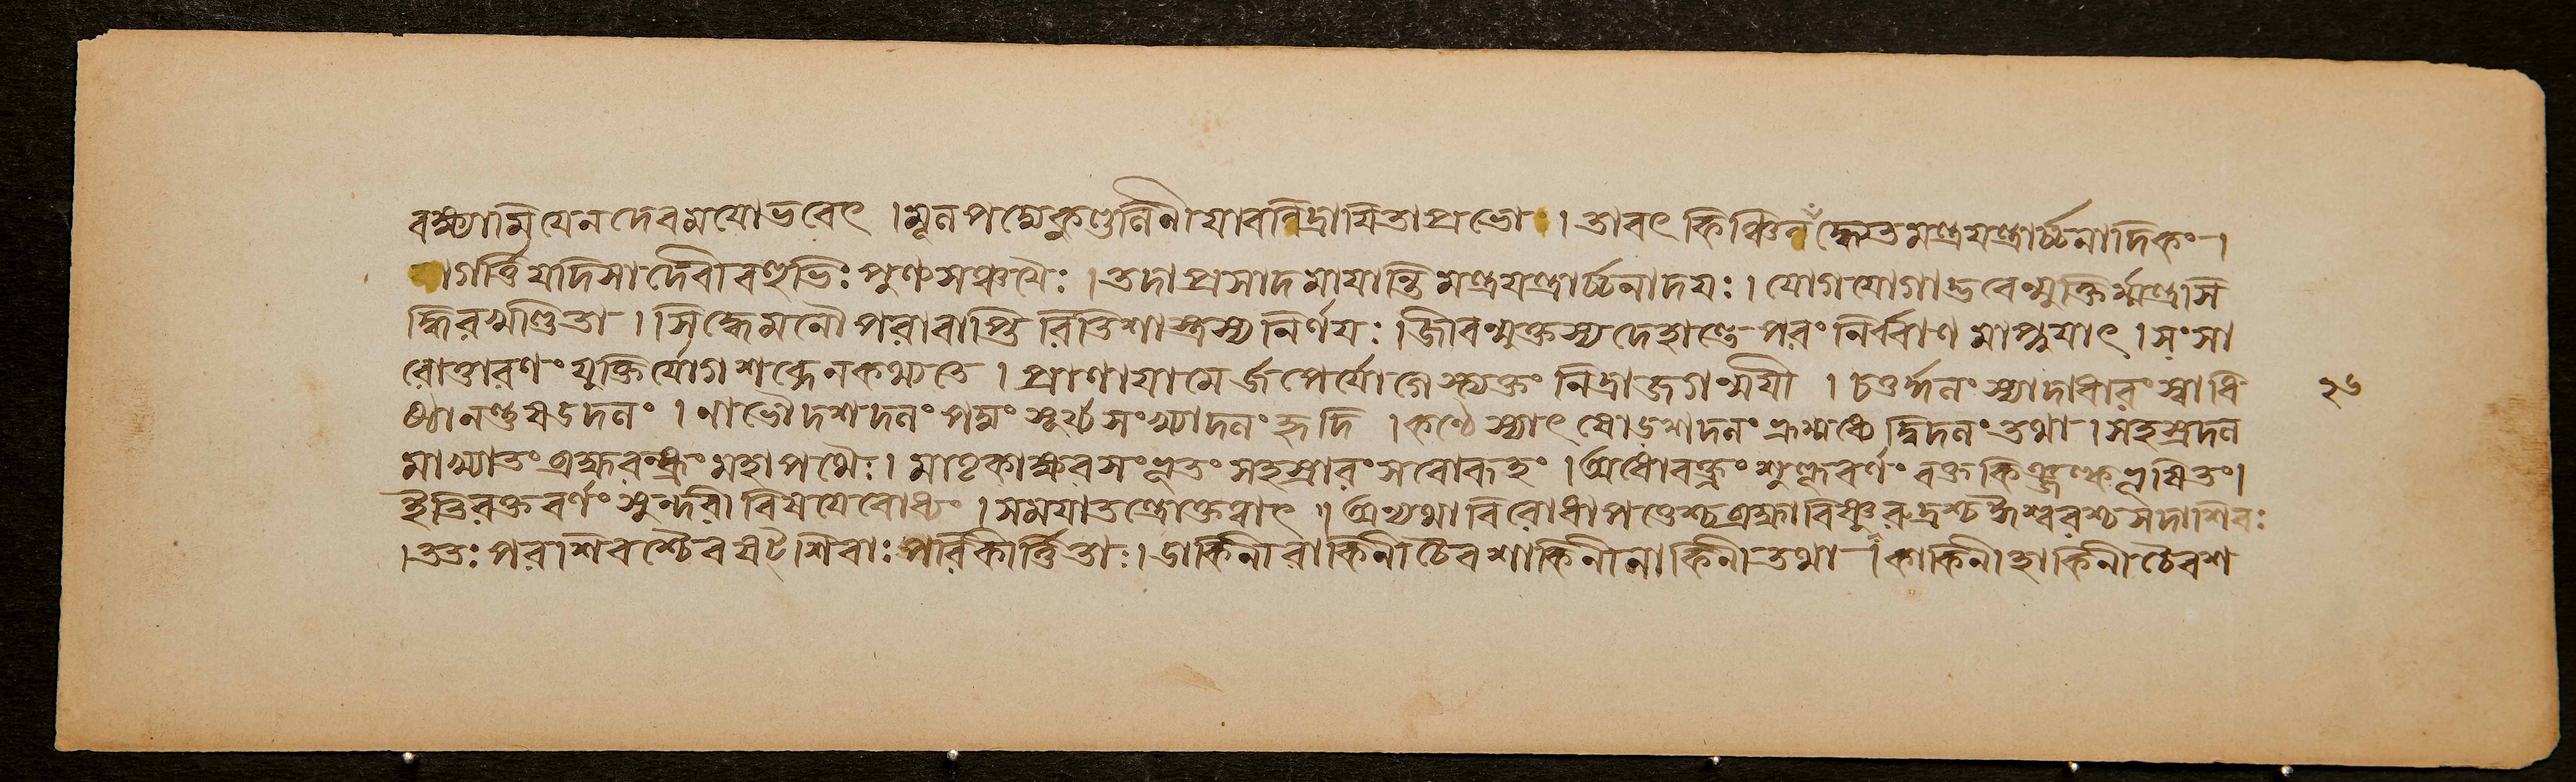 বক্ষ্যামি যেন দেবময়ো ভবেৎ । মূলপদ্মে কুণ্ডলিনী যাবন্নিদ্রায়িতা প্রভো । তাবৎ কিঞ্চিন্ন সিদ্ধ্যেত মন্ত্রযন্ত্রার্চ্চনাদিকং ।
জাগর্ত্তি যদি সা দেবী বহুভিঃ পুণ্যসঞ্চয়ৈঃ । তদা প্রসাদমায়ান্তি মন্ত্রযন্ত্রার্চ্চনাদয়ঃ । যোগযোগাদ্ভবেন্মুক্তির্মন্ত্রসি
দ্ধিরখণ্ডিতা । সিদ্ধে মনৌ পরাবাপ্তিরিতি শাস্ত্রস্য নির্ণয়ঃ । জীবন্মুক্তস্য দেহান্তে পরং নির্ব্বাণমাপ্নুয়াৎ । সংসা
রোত্তারণং মুক্তির্যোগশব্দেন কথ্যতে । প্রাণায়ামৈর্জপৈর্যোগৈস্ত্যক্তং নিদ্রা জগন্ময়ী । চতুর্দ্দলং স্যাদাধারং স্বাধি ২৬
ষ্ঠানন্তু ষড়দলং । নাভৌ দশদলং পদ্মং সূর্য্যসংখ্যাদলং হৃদি । কণ্ঠে স্যাৎ ষোড়শদলং ভ্রূমধ্যে দ্বিদলং তথা । সহস্রদল
মাখ্যাতং ব্রহ্মরন্ধ্রং মহাপথৈঃ । মাতৃকাক্ষরসংপ্লুতং সহস্রারং সরোরুহং । অধোবক্ত্রং শুক্লবর্ণং রক্তকিঞ্জল্কভূষিতং ।
ইতি রক্তবর্ণং সুন্দরী বিষয়ে বোধ্যং । সময়াতন্ত্রোক্তত্বাৎ ॥ অন্যথা বিরোধাপত্তেশ্চ ব্রহ্মা বিষ্ণুরুদ্রশ্চ ঈশ্বরশ্চ সদাশিবঃ
। ততঃ পরশিবশ্চৈব ষট্ শিবাঃ পরিকীর্ত্তিতাঃ । ডাকিনী রাকিনী চৈব শাকিনী লাকিনী তথা । কাকিনী হাকিনী চৈব শ